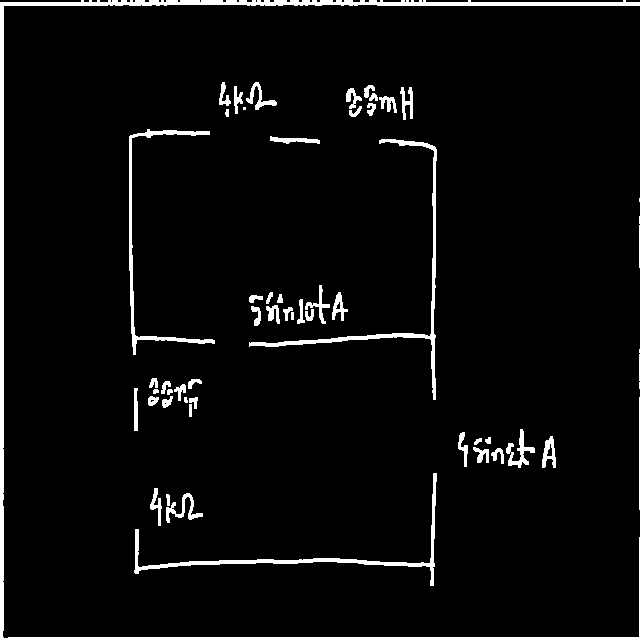 4kΩ
33mH
5sin10tA
33nF
4sin2t A
4kΩ